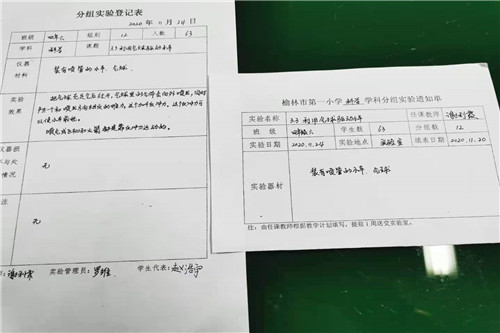 分组实验登记表
2020 年 11 月 24 日
班级 四年六 组别 12 人数 63
学科 科学 课题 3.3 利用气球驱动小车
仪器
材料 装有喷管的小车、气球
实验
效果
把气球充足气后放开,气球里的气体会向外喷出,同时
喷气式飞机和火箭都是靠反冲力运动的。
情况 无
注 无
实验管理员: 学生代表:
榆林市第一小学 科学 学科分组实验通知单
实验名称 3.3 利用气球驱动小车 任课教师
班 级 四年六 学生数 63 分组数 12
实验日期 2020.11.24 实验地点 实验室 填表日期 2020.11.20
实验器材 装有喷管的小车、气球
注:由任课教师根据教学计划填写,提前1周送交实验室。